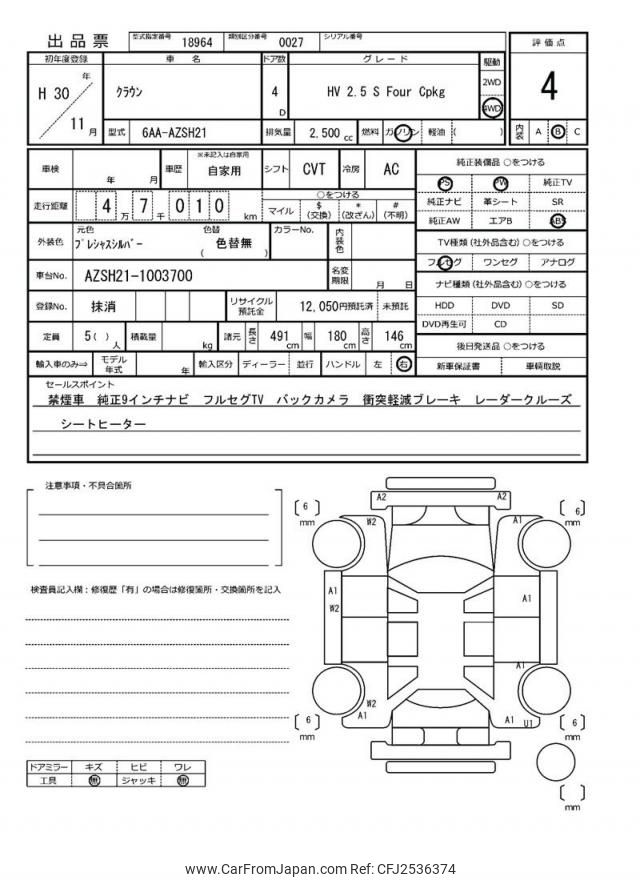 出品票 型式指定番号 18964 類別区分番号 0027 シリアル番号
初年度登録 車名 ドア数 グレード 駆動 評価点
H 30 年 11 月 クラウン 4 D HV 2.5 S Four Cpkg 2WD 4WD 4
型式 6AA-AZSH21 排気量 2,500 cc 燃料 ガソリン 軽油 ( ) 内装 A B C
車検 年 月 車歴 ※未記入は自家用 自家用 シフト CVT 冷房 AC
走行距離 4 万 7 千 0 1 0 km ○をつける マイル $ (交換) * (改ざん) # (不明)
外装色 元色 プレシャスシルバー 色替 ( 色替無 ) カラーNo. 内装色
車台No. AZSH21-1003700 名変期限 月 日
登録No. 抹消 リサイクル預託金 12,050円預託済 未預託
定員 5( ) 人 積載量 kg 諸元 長さ 491 cm 幅 180 cm 高さ 146 cm
輸入車のみ⇒ モデル年式 年 輸入区分 ディーラー 並行 ハンドル 左 右
純正装備品 ○をつける
PS PW 純正TV
純正ナビ 革シート SR
純正AW エアB ABS
TV種類 (社外品含む) ○をつける
フルセグ ワンセグ アナログ
ナビ種類 (社外品含む) ○をつける
HDD DVD SD
DVD再生可 CD
後日発送品 ○をつける
新車保証書 車輌取説
セールスポイント
禁煙車 純正9インチナビ フルセグTV バックカメラ 衝突軽減ブレーキ レーダークルーズ
シートヒーター
注意事項・不具合箇所
検査員記入欄：修復歴「有」の場合は修復箇所・交換箇所を記入
A2 A2
[ 6 ] mm W2 A1 [ 6 ] mm
A1 W2 A1
A1
[ 6 ] mm W2 A1 A1 U1 [ 6 ] mm
[ ] mm
ドアミラー キズ ヒビ ワレ
工具 無 ジャッキ 無
www.CarFromJapan.com Ref: CFJ2536374